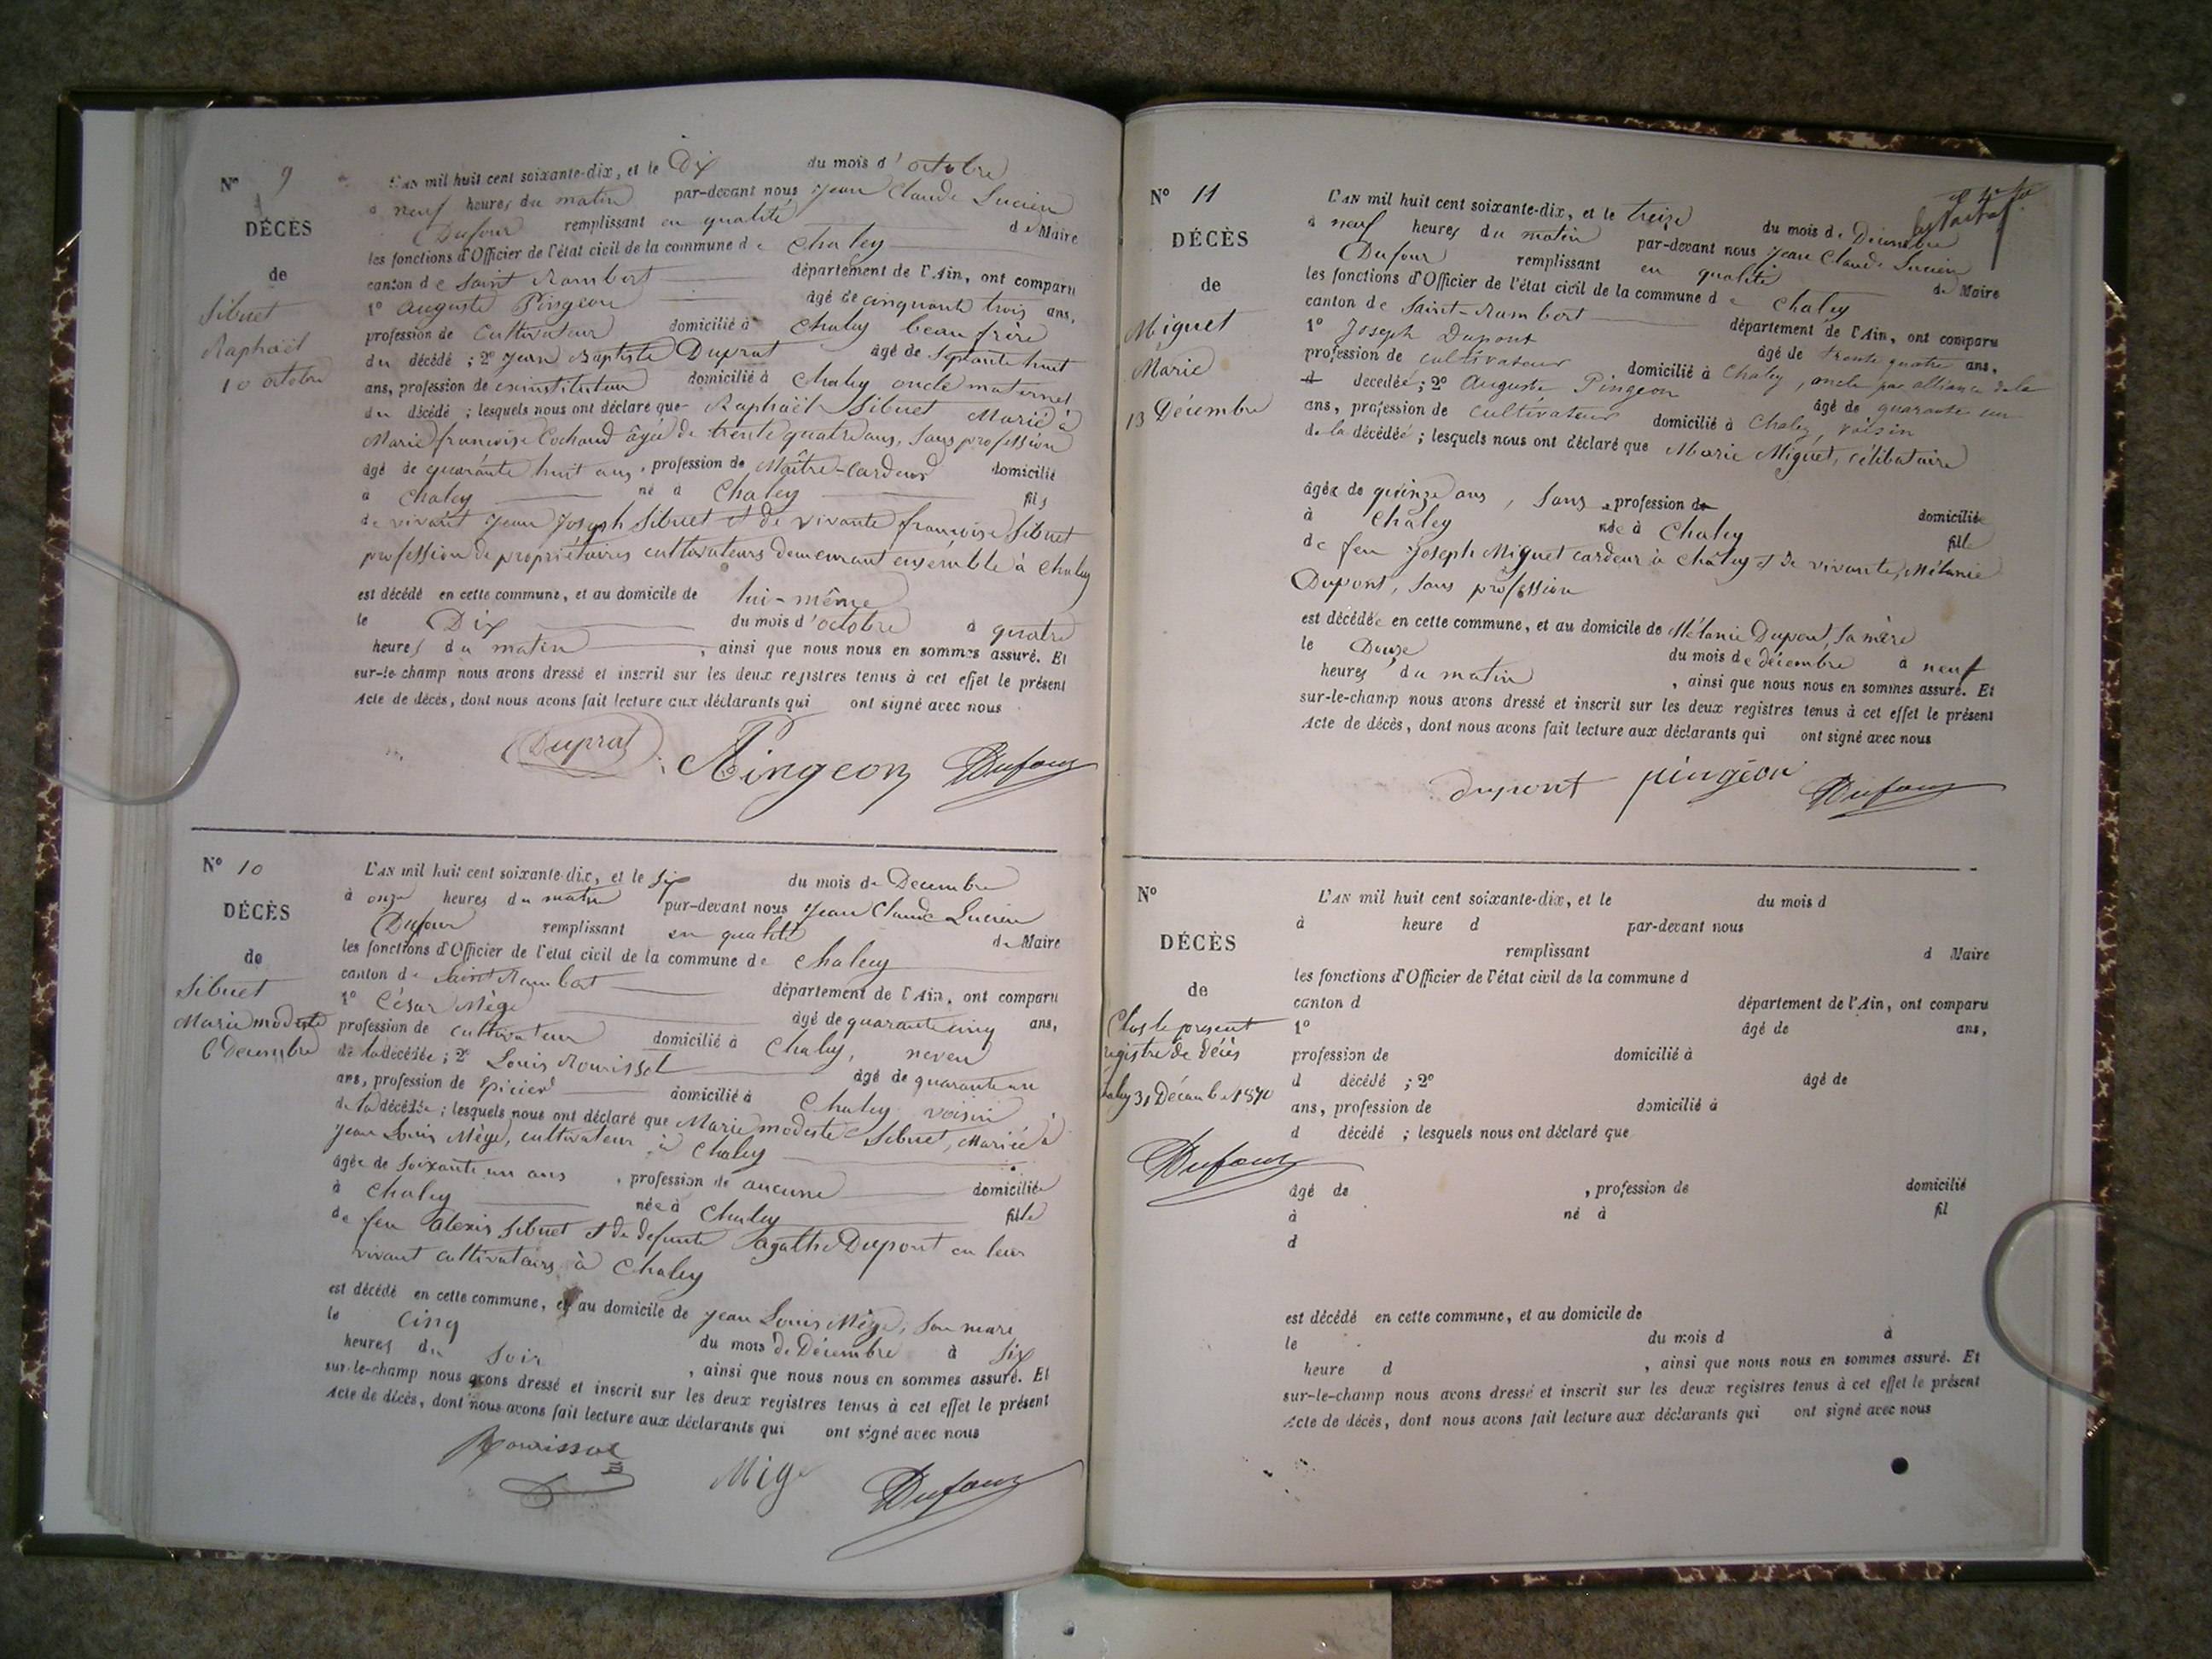 N° 9
DÉCÈS
de
Sibuet
Raphaël
10 octobre
L'AN mil huit cent soixante-dix, et le Dix du mois d'octobre
à neuf heures du matin par-devant nous Jean Claude Lucien
Dufour remplissant en qualité de Maire
les fonctions d'Officier de l'état civil de la commune de Chaley
canton de Saint Rambert département de l'Ain, ont comparu
1° Auguste Pingeon âgé de cinquante trois ans,
profession de Cultivateur domicilié à Chaley beau frère
du décédé ; 2° Jean Baptiste Duprat âgé de Septante huit
ans, profession de exinstituteur domicilié à Chaley oncle maternel
du décédé ; lesquels nous ont déclaré que Raphaël Sibuet Marié à
Marie françoise Cochand âgée de trente quatre ans, Sans profession
âgé de quarante huit ans, profession de Maître-Cardeur domicilié
à Chaley né à Chaley fils
de vivant Jean Joseph Sibuet et de vivante françoise Sibuet
profession de propriétaires cultivateurs demeurant ensemble à Chaley
est décédé en cette commune, et au domicile de lui-même
le Dix du mois d'octobre à quatre
heures du matin, ainsi que nous nous en sommes assuré. Et
sur-le-champ nous avons dressé et inscrit sur les deux registres tenus à cet effet le présent
Acte de décès, dont nous avons fait lecture aux déclarants qui ont signé avec nous
Duprat Pingeon Dufour
N° 10
DÉCÈS
de
Sibuet
Marie modeste
6 Decembre
L'AN mil huit cent soixante-dix, et le Six du mois de Decembre
à onze heures du matin par-devant nous Jean Claude Lucien
Dufour remplissant en qualité de Maire
les fonctions d'Officier de l'état civil de la commune de Chaley
canton de Saint Rambert département de l'Ain, ont comparu
1° César Mège âgé de quarante cinq ans,
profession de cultivateur domicilié à Chaley, neveu
de la décédée ; 2° Louis Rourisset âgé de quarante un
ans, profession de Epicier domicilié à Chaley voisin
de la décédée ; lesquels nous ont déclaré que Marie modeste Sibuet, Mariée à
Jean Louis Mège, cultivateur à Chaley
âgée de Soixante un ans, profession de aucune domiciliée
à Chaley née à Chaley fille
de feu Alexis Sibuet et de defunte Agathe Dupont en leur
vivant cultivateurs à Chaley
est décédé en cette commune, et au domicile de Jean Louis Mège, Son mari
le Cinq du mois de Décembre à Six
heures du Soir, ainsi que nous nous en sommes assuré. Et
sur-le-champ nous avons dressé et inscrit sur les deux registres tenus à cet effet le présent
Acte de décès, dont nous avons fait lecture aux déclarants qui ont signé avec nous
Mège Dufour
N° 11
DÉCÈS
de
Miguet
Marie
13 Décembre
L'AN mil huit cent soixante-dix, et le treize du mois de Décembre
à neuf heures du matin par-devant nous Jean Claude Lucien
Dufour remplissant en qualité de Maire
les fonctions d'Officier de l'état civil de la commune de Chaley
canton de Saint-Rambert département de l'Ain, ont comparu
1° Joseph Dupont âgé de trente quatre ans,
profession de cultivateur domicilié à Chaley, oncle par alliance de la
decedée ; 2° Auguste Pingeon âgé de quarante un
ans, profession de cultivateur domicilié à Chaley, voisin
de la décédée ; lesquels nous ont déclaré que Marie Miguet, célibataire
âgée de quinze ans, Sans profession de domiciliée
à Chaley née à Chaley fille
de feu Joseph Miguet cardeur à Chaley et de vivante, Mélanie
Dupont, Sans profession
est décédée en cette commune, et au domicile de Mélanie Dupont, Sa mère
le Douze du mois de décembre à neuf
heures du matin, ainsi que nous nous en sommes assuré. Et
sur-le-champ nous avons dressé et inscrit sur les deux registres tenus à cet effet le présent
Acte de décès, dont nous avons fait lecture aux déclarants qui ont signé avec nous
dupont pingéon Dufour
N°
DÉCÈS
de
Clos le présent
registre de décès
31 Décembre 1870
Dufour
L'AN mil huit cent soixante-dix, et le du mois d
à heure d par-devant nous
remplissant d Maire
les fonctions d'Officier de l'état civil de la commune d
canton d département de l'Ain, ont comparu
1° âgé de ans,
profession de domicilié à
d décédé ; 2° âgé de
ans, profession de domicilié à
d décédé ; lesquels nous ont déclaré que
âgé de , profession de domicilié
à né à fil
d
est décédé en cette commune, et au domicile de
le du mois d à
heure d , ainsi que nous nous en sommes assuré. Et
sur-le-champ nous avons dressé et inscrit sur les deux registres tenus à cet effet le présent
Acte de décès, dont nous avons fait lecture aux déclarants qui ont signé avec nous